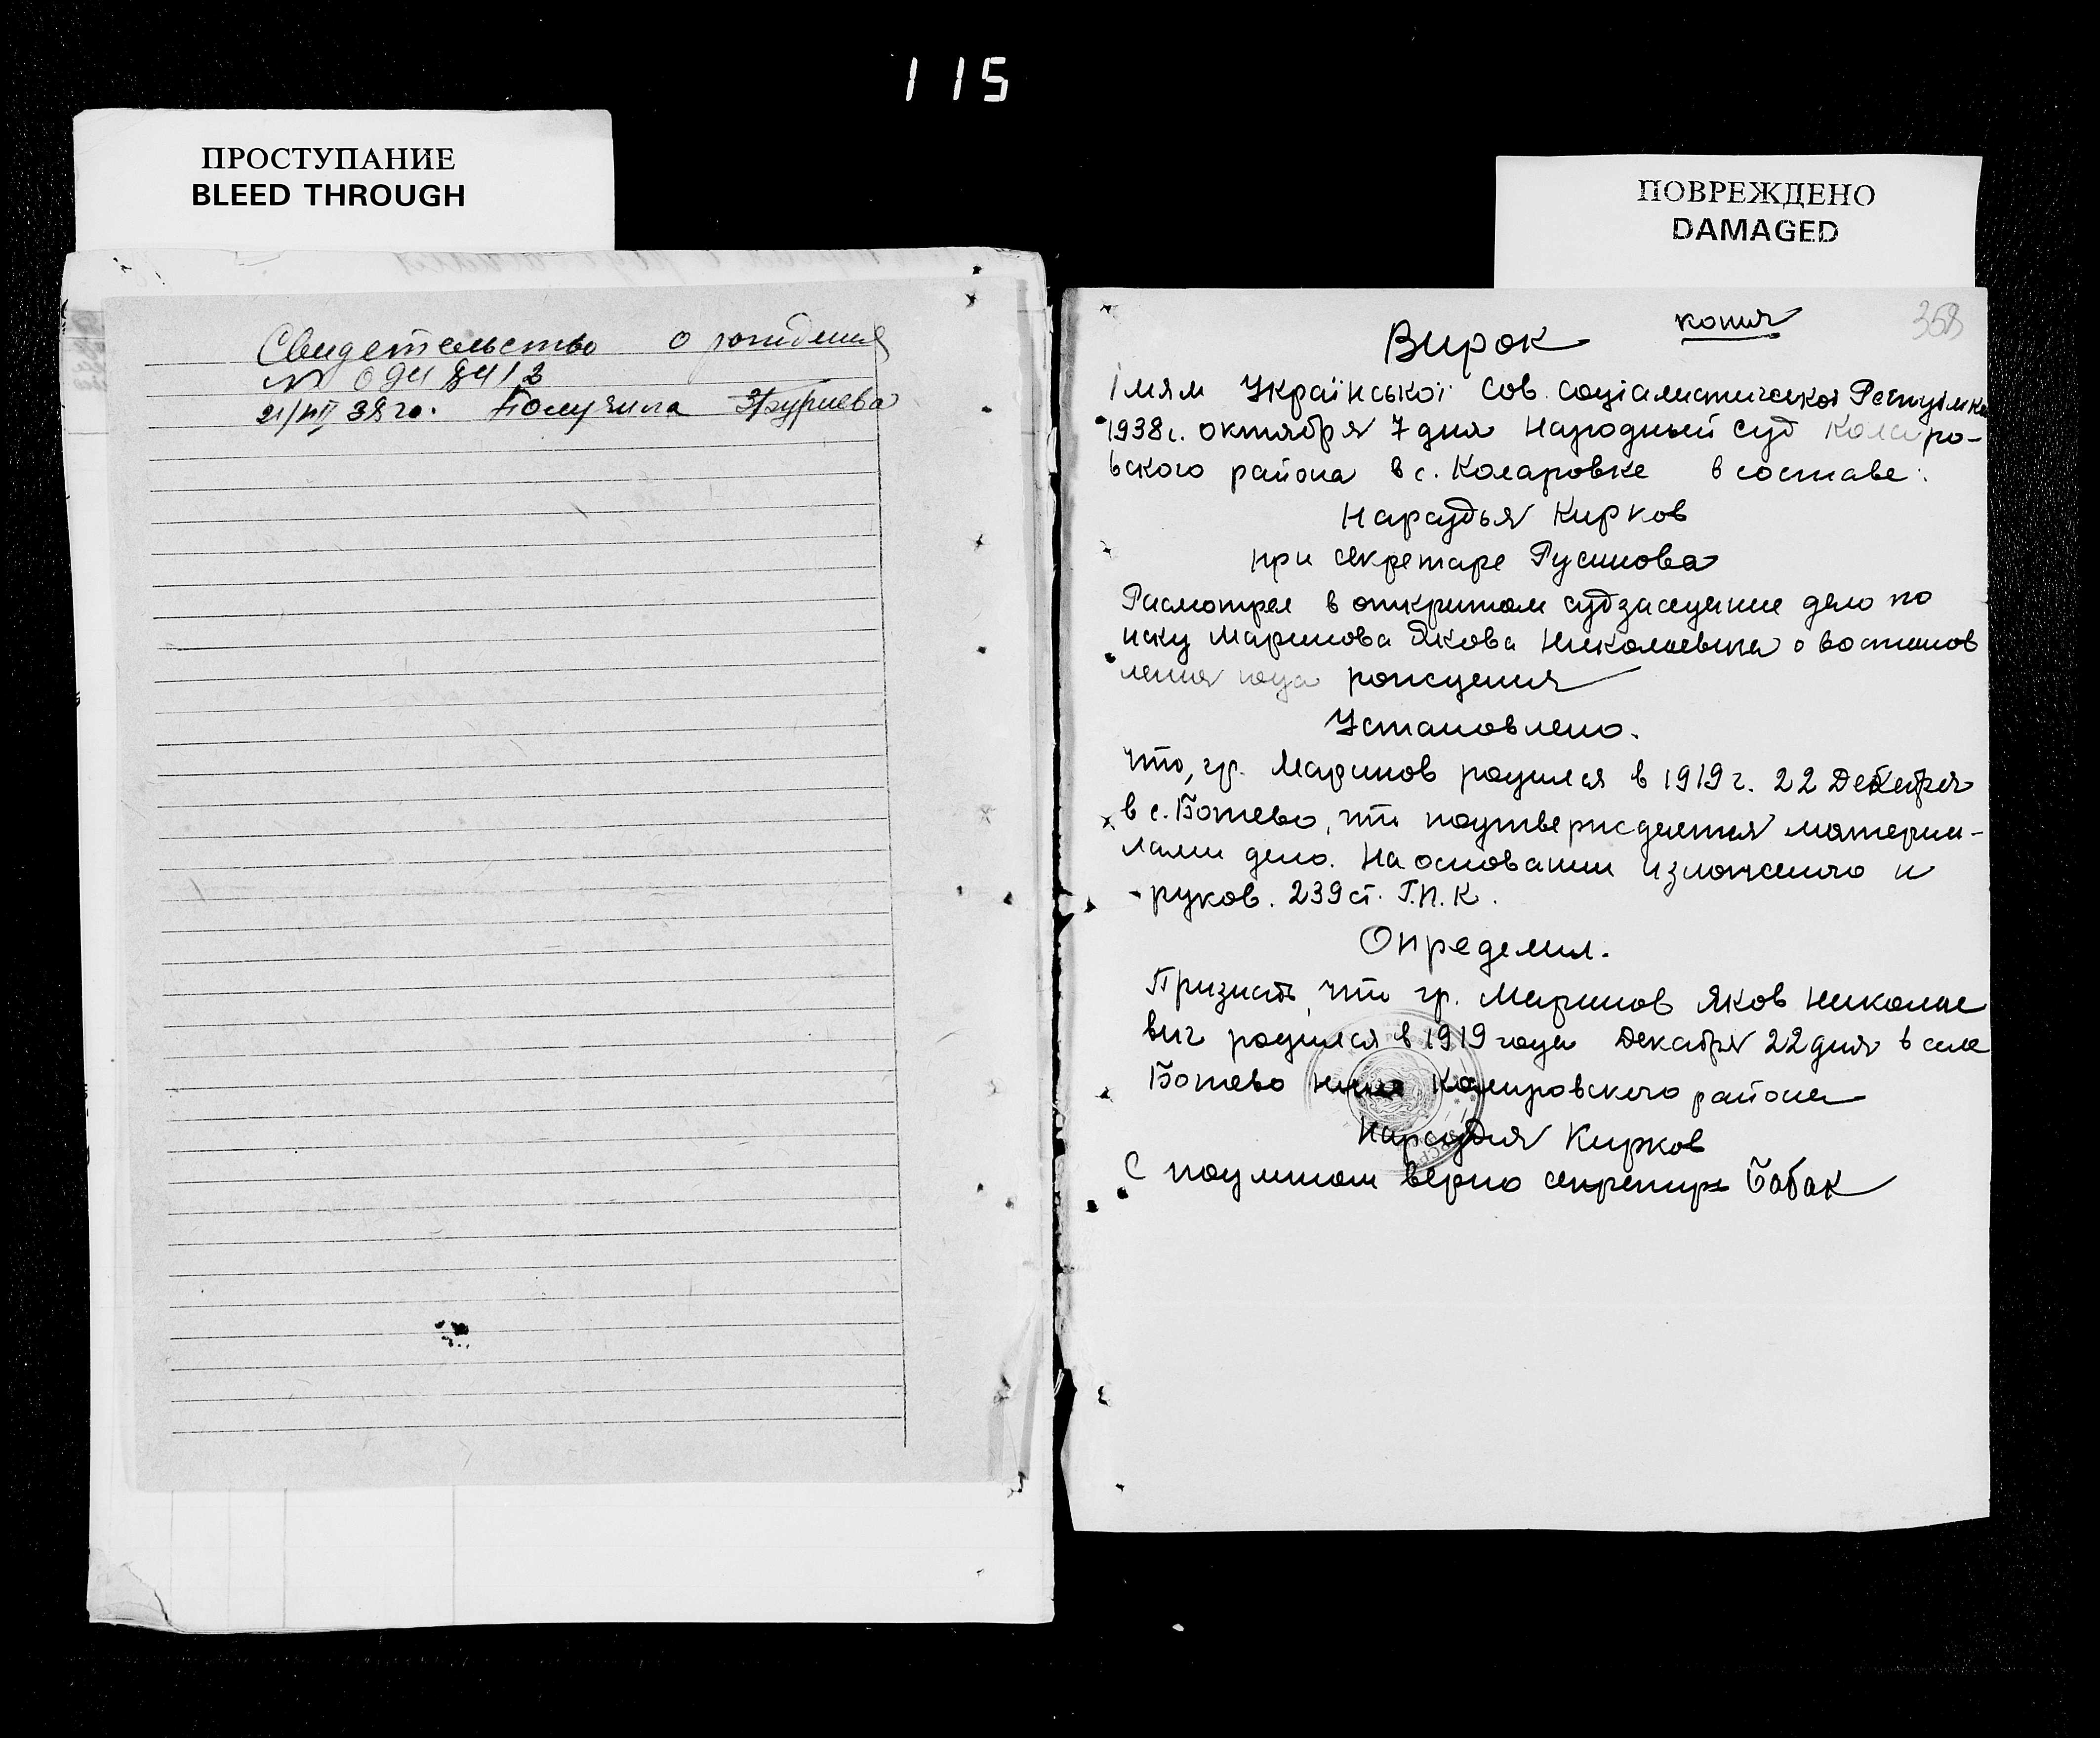 115
ПРОСТУПАНИЕ
BLEED THROUGH
Свидетельство о рождения
№ 094
38 го. Получила
ПОВРЕЖДЕНО
DAMAGED
358
копия
Вирок
Імям Української Сов. Соціалистической Республіки
1938г. октября 7 дня Народный суд Коларо-
вского района в с. Коларовке в составе:
Нарсудья Кирков
при секретаре Русинова
Расмотрев в открытом судзаседание дело по
иску Маринова Якова Николаевича о востанов
ления года рождения
Установлено.
что, гр. Маринов родился в 1919 г. 22 Декабря
в с. Ботево, что подтверждается материа-
лами дело. На основании изложеного и
руков. 239 ст. Г.П.К.
Определил.
Признать, что гр. Маринов Яков Николае
вич родился в 1919 года Декабря 22 дня в селе
Ботево Коларовского района
Нарсудья Кирков
С подлином верно секретарь Бабак